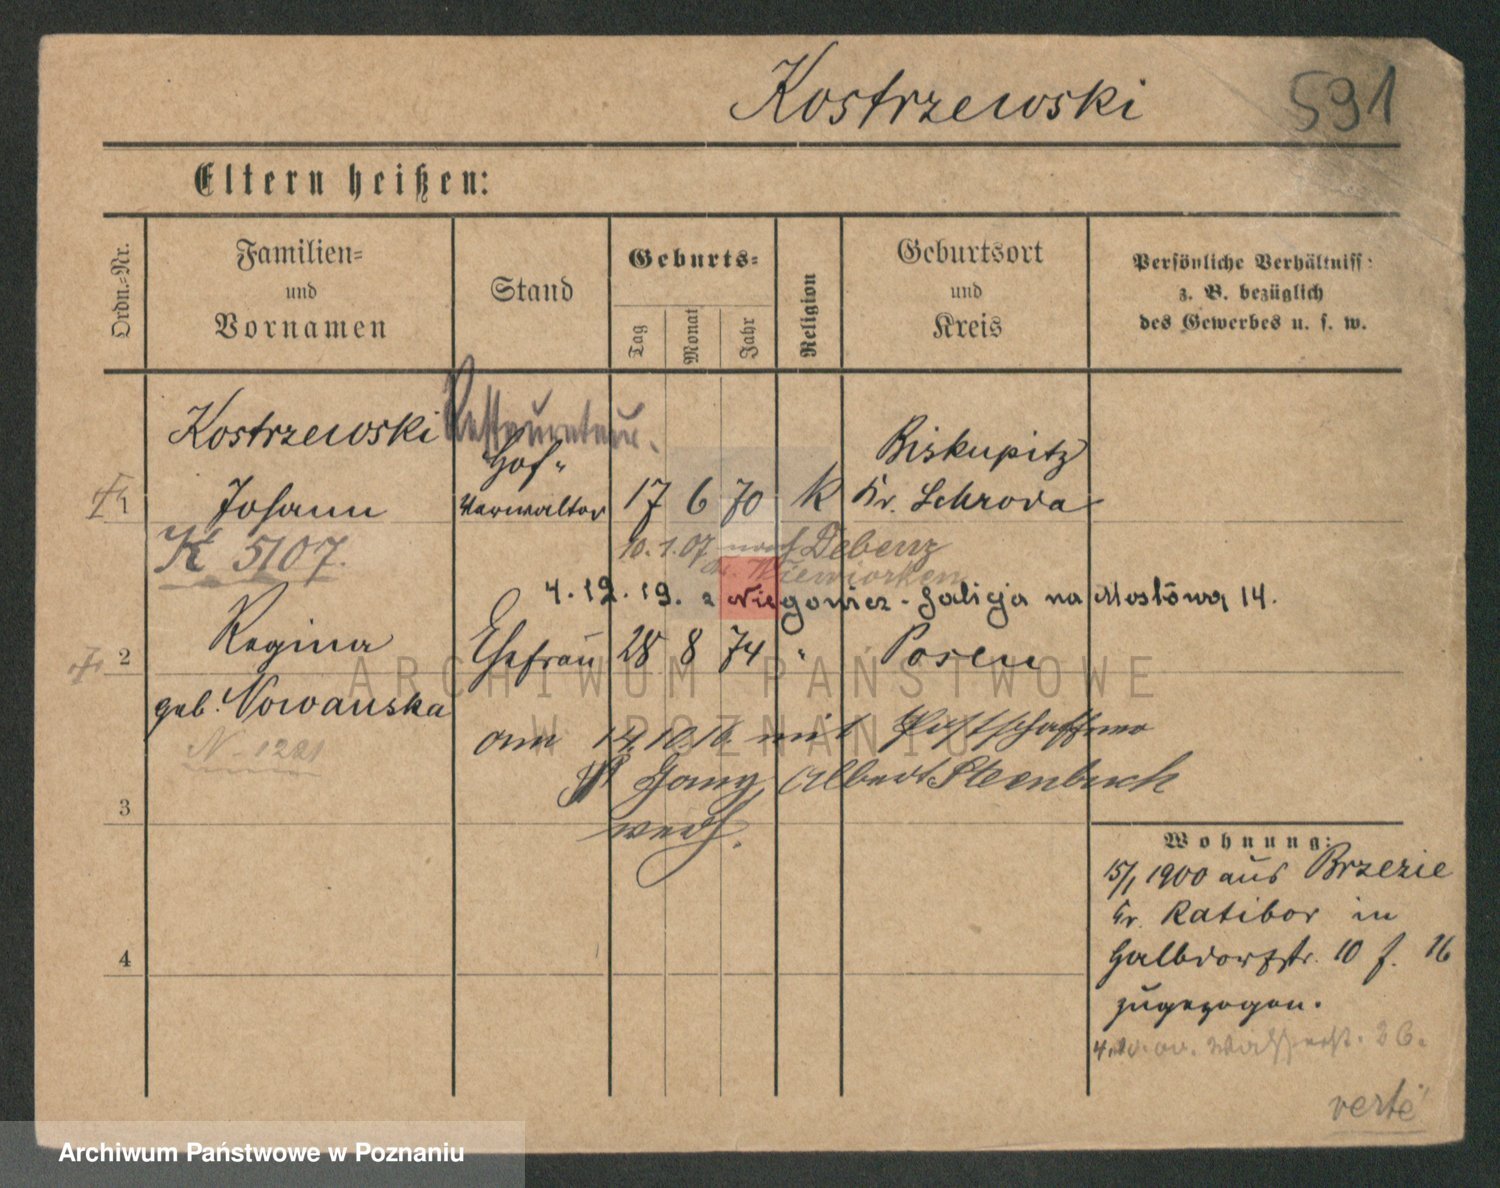 Kostrzewski
591
Eltern heißen:
Ordn.-Nr.
Familien- und Vornamen
Stand
Geburts-
Tag
Monat
Jahr
Religion
Geburtsort und Kreis
Persönliche Verhältniss
z. B. bezüglich
des Gewerbes u. s. w.
Kostrzewski
Restaurateur.
Hof-
Biskupitz
1
Johann
Verwalter
17 6 70 k Kr. Schroda
K 5107.
10.1.07 nach Debenz
4.12.19. z Niegowicz - Galicja na Mostową 14.
2
Regina
Ehefrau
28 8 74 " Posen
geb. Nowanska
N-1221
am 14.10.16 mit
Albert Steenbuck
3
4
Wohnung:
15/1 1900 aus Brzezie
Kr. Ratibor in
Halbdorfstr. 10 f. 16
zugezogen.
verte
ARCHIWUM PAŃSTWOWE
W POZNANIU
Archiwum Państwowe w Poznaniu